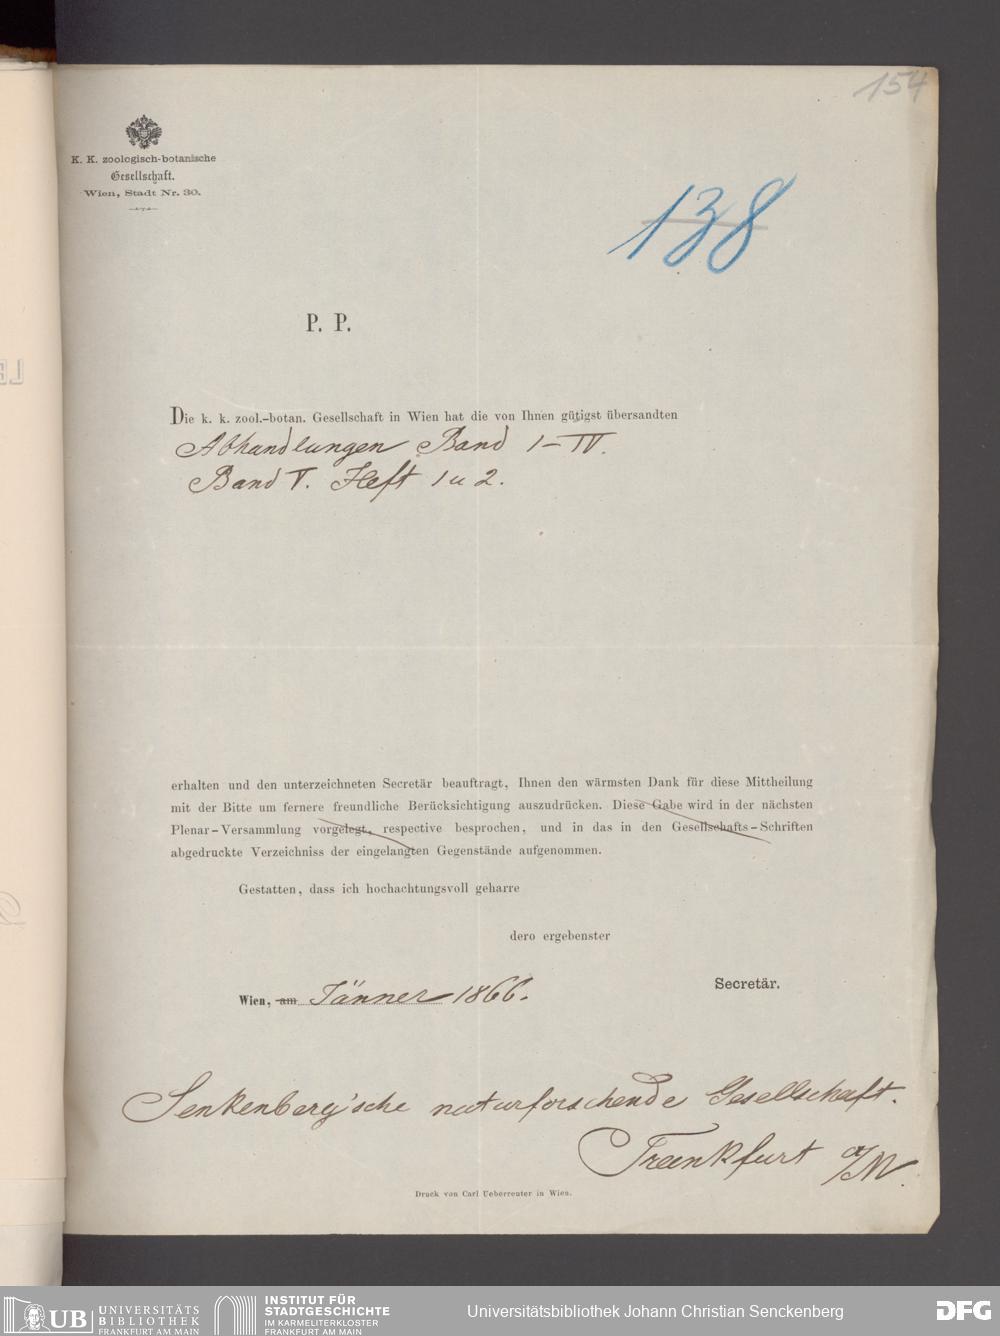 154
K. K. zoologisch-botanische
Gesellschaft.
Wien, Stadt Nr. 30.
138
P. P.
Die k. k. zool.-botan. Gesellschaft in Wien hat die von Ihnen gütigst übersandten
Abhandlungen Band I-IV.
Band V. Heft 1 u 2.
erhalten und den unterzeichneten Secretär beauftragt, Ihnen den wärmsten Dank für diese Mittheilung
mit der Bitte um fernere freundliche Berücksichtigung auszudrücken. Diese Gabe wird in der nächsten
Plenar-Versammlung vorgelegt, respective besprochen, und in das in den Gesellschafts-Schriften
abgedruckte Verzeichniss der eingelangten Gegenstände aufgenommen.
Gestatten, dass ich hochachtungsvoll geharre
dero ergebenster
Secretär.
Wien, am Jänner 1866.
Senkenberg'sche naturforschende Gesellschaft.
Frankfurt a/M.
Druck von Carl Ueberreuter in Wien.
UB UNIVERSITÄTS
BIBLIOTHEK
FRANKFURT AM MAIN
INSTITUT FÜR
STADTGESCHICHTE
IM KARMELITERKLOSTER
FRANKFURT AM MAIN
Universitätsbibliothek Johann Christian Senckenberg
DFG